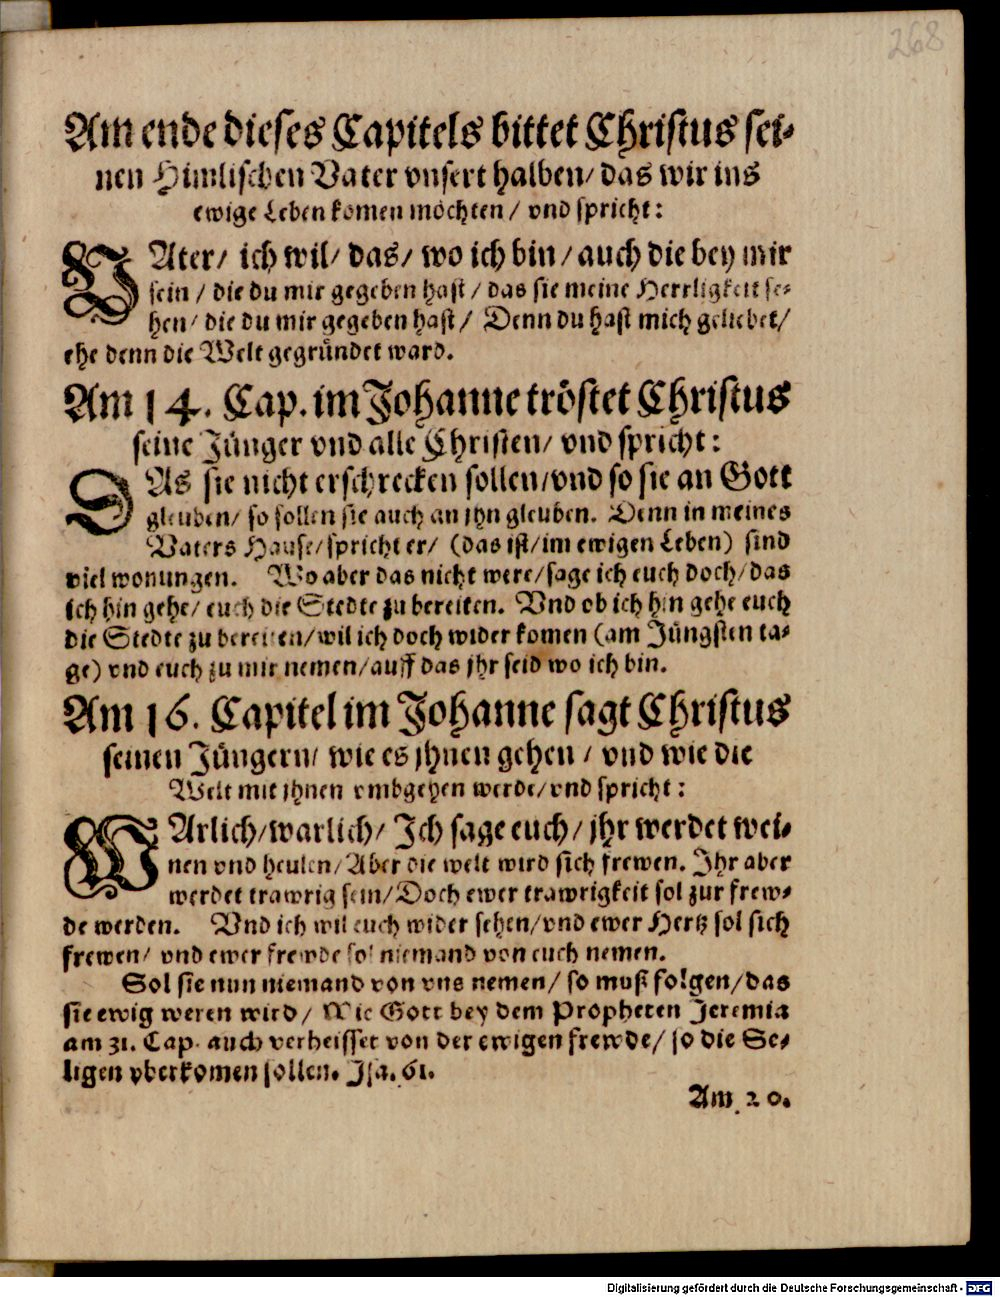 268
Am ende dieses Capitels bittet Christus sei-
nen Himlischen Vater vnsert halben/ das wir ins
ewige Leben komen möchten / vnd spricht:
VAter/ ich wil/ das/ wo ich bin / auch die bey mir
sein / die du mir gegeben hast / das sie meine Herrligkeit se-
hen/ die du mir gegeben hast / Denn du hast mich geliebet/
ehe denn die Welt gegründet ward.
Am 14. Cap. im Johanne tröstet Christus
seine Jünger vnd alle Christen/ vnd spricht:
DAs sie nicht erschrecken sollen/vnd so sie an Gott
gleuben/ so sollen sie auch an jhn gleuben. Denn in meines
Vaters Hause/spricht er/ (das ist/im ewigen Leben) sind
viel wonungen. Wo aber das nicht were/sage ich euch doch/das
ich hin gehe/ euch die Stedte zu bereiten. Vnd ob ich hin gehe euch
die Stedte zu bereiten/wil ich doch wider komen (am Jüngsten ta-
ge) vnd euch zu mir nemen/auff das jhr seid wo ich bin.
Am 16. Capitel im Johanne sagt Christus
seinen Jüngern/ wie es jhnen gehen / vnd wie die
Welt mit jhnen vmbgehen werde/vnd spricht:
WArlich/warlich/ Ich sage euch/ jhr werdet wei-
nen vnd heulen/Aber die welt wird sich frewen. Ihr aber
werdet trawrig sein/Doch ewer trawrigkeit sol zur frew-
de werden. Vnd ich wil euch wider sehen/vnd ewer Hertz sol sich
frewen/ vnd ewer frewde sol niemand von euch nemen.
Sol sie nun niemand von vns nemen/ so muß folgen/das
sie ewig weren wird/ Wie Gott bey dem Propheten Jeremia
am 31. Cap. auch verheisset von der ewigen frewde/ so die Se-
ligen vberkomen sollen. Isa. 61.
Am 20.
Digitalisierung gefördert durch die Deutsche Forschungsgemeinschaft - DFG